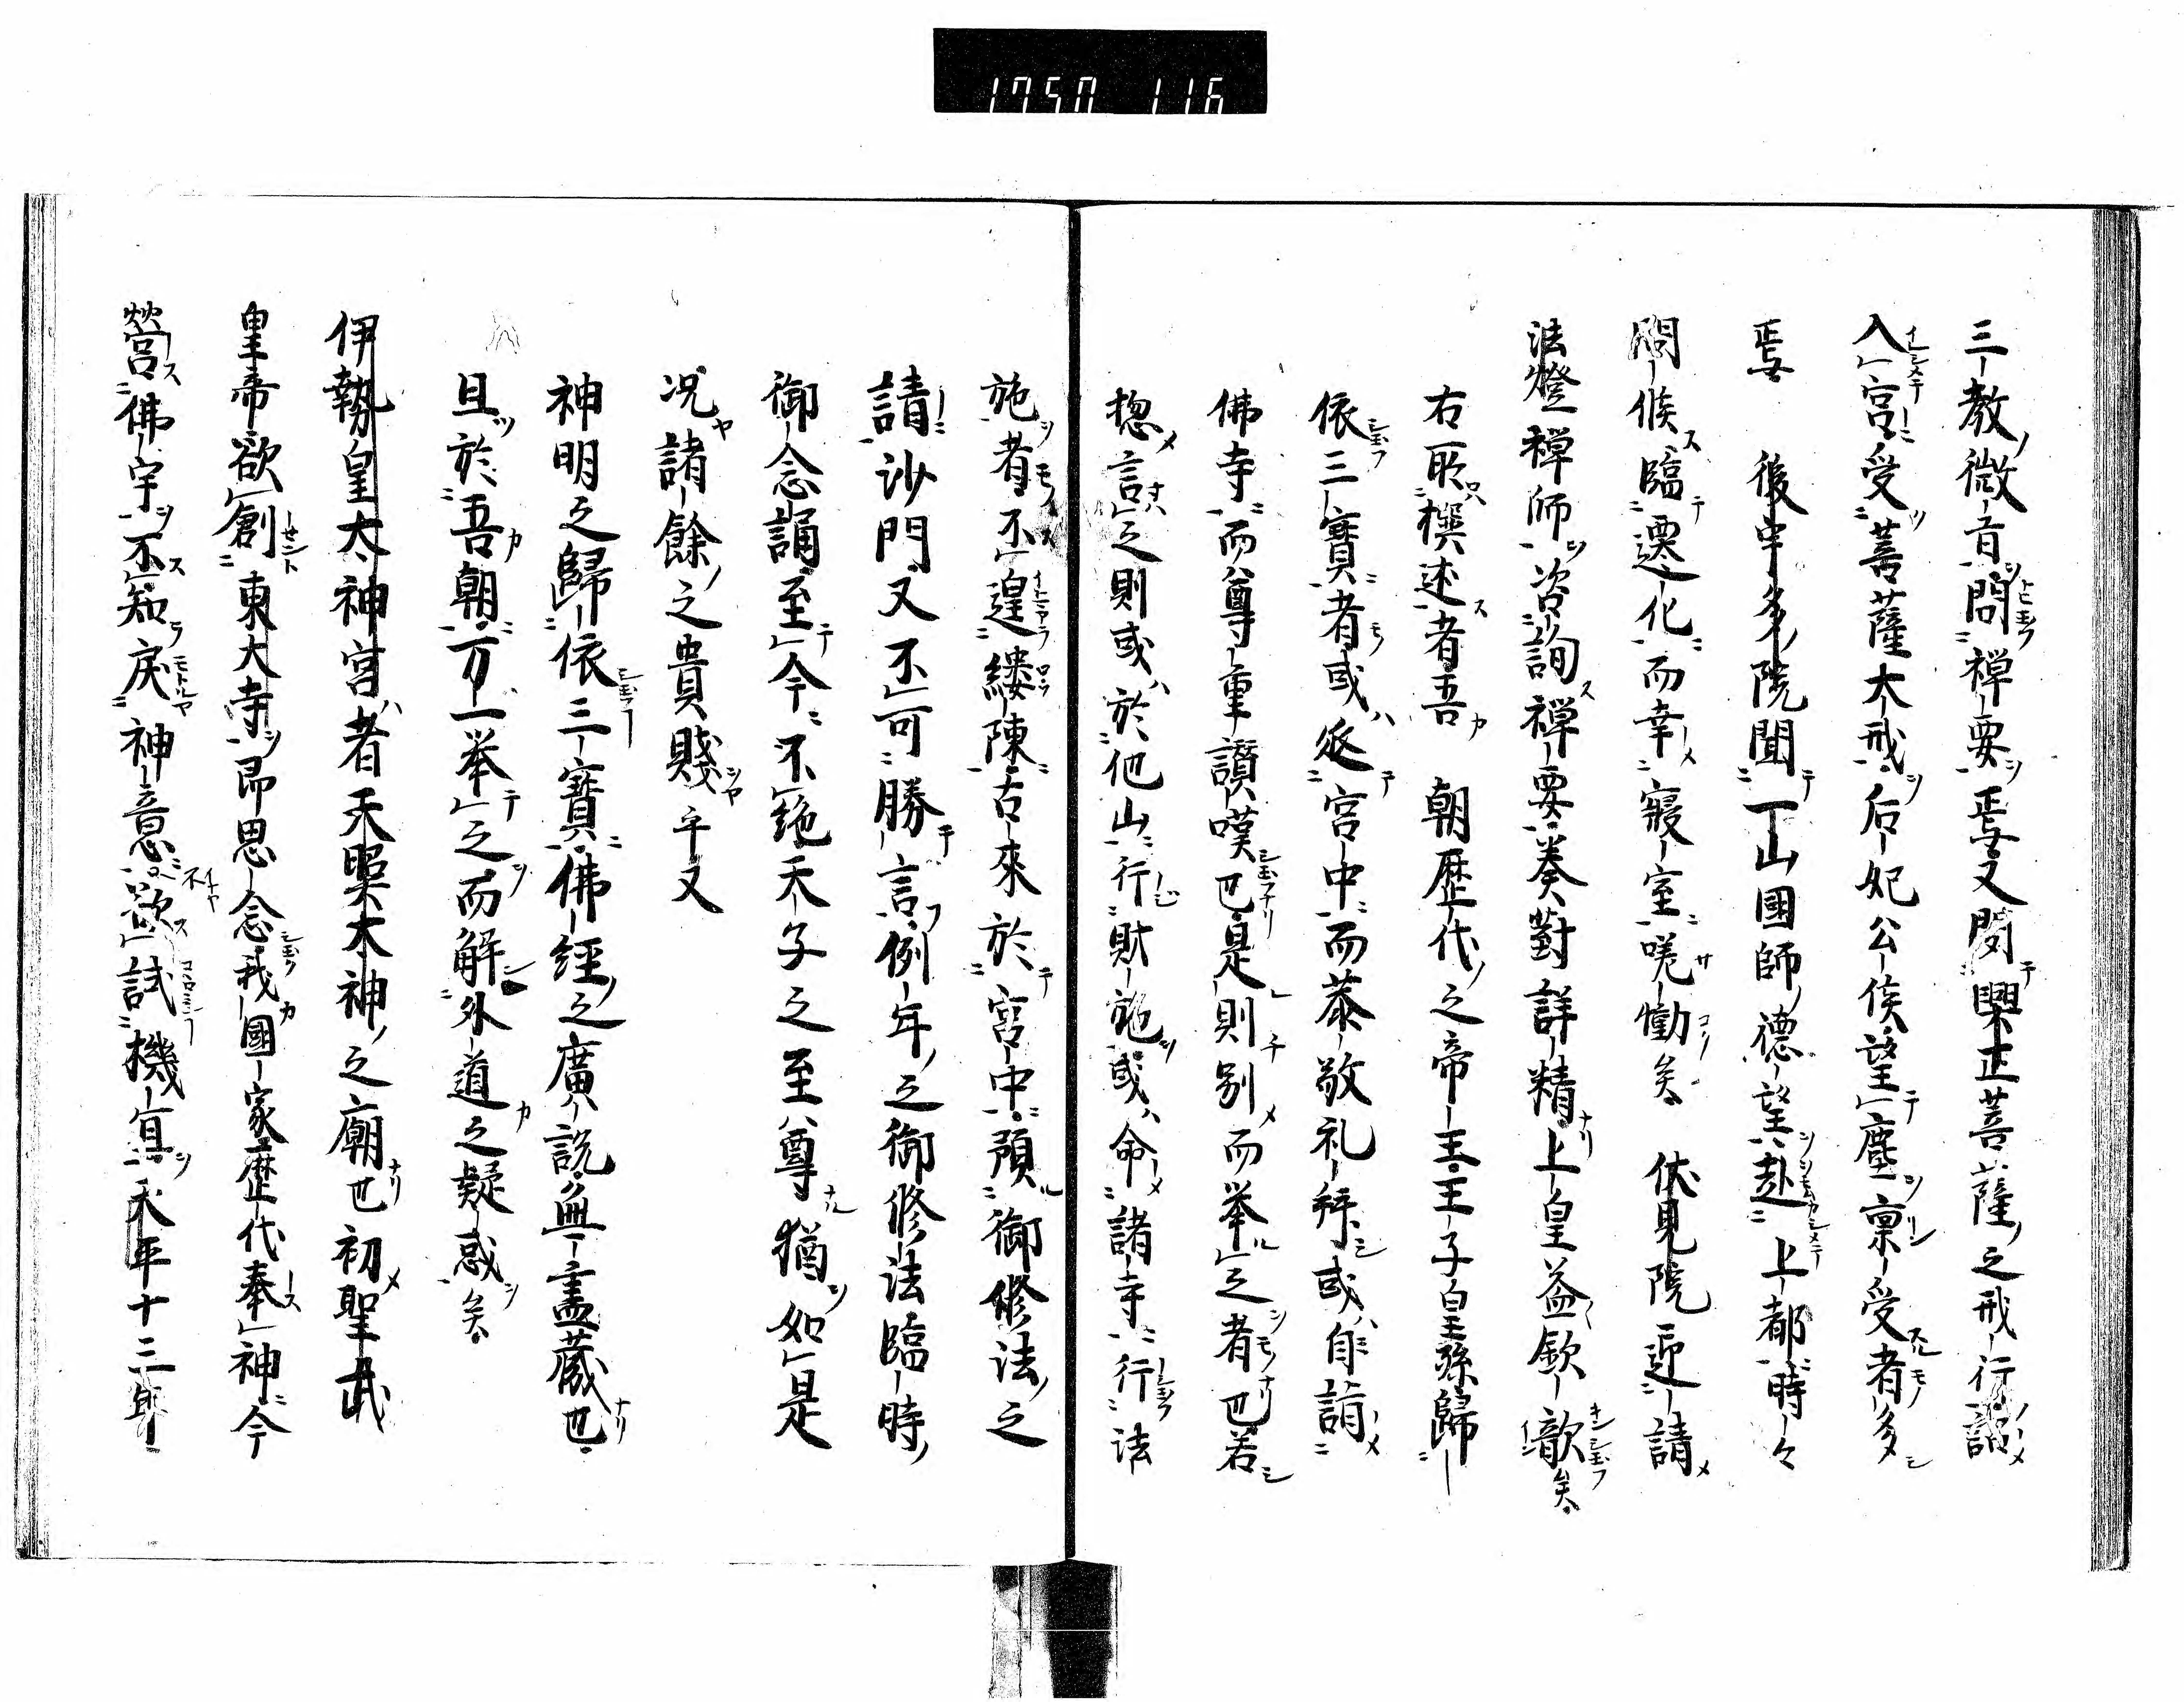 1750 116
三教微旨問禅要焉又聞興正菩薩之戒行詔
入宮受菩薩大戒后妃公侯望塵稟受者多
焉　後宇多院聞一山國師德望赴上都時々
問候臨遷化而幸寝室嗟慟矣　伏見院迎請
法燈禅師咨詢禅要奏對詳精上皇益欽歎矣
右所撰述者吾　朝歴代之帝王王子皇孫歸
依三寶者或迎宮中而恭敬礼拜或自詣
佛寺而尊重讃嘆也是則別而举之者也若
惣言之則或於他山行財施或命諸寺行法
施者不遑縷陳古來於宮中預御修法之
請沙門又不可勝言例年之御修法臨時
御念誦至今不絶天子之至尊猶如是
况諸餘之貴賤乎又
神明之歸依三寶佛經之廣説無盡蔵也
且於吾朝万一举之而解外道之疑惑矣
伊勢皇太神宮者天照太神之廟也初聖武
皇帝欲創東大寺即思念我國家歴代奉神今
營佛宇不知戻神意欲試機宜天平十三年